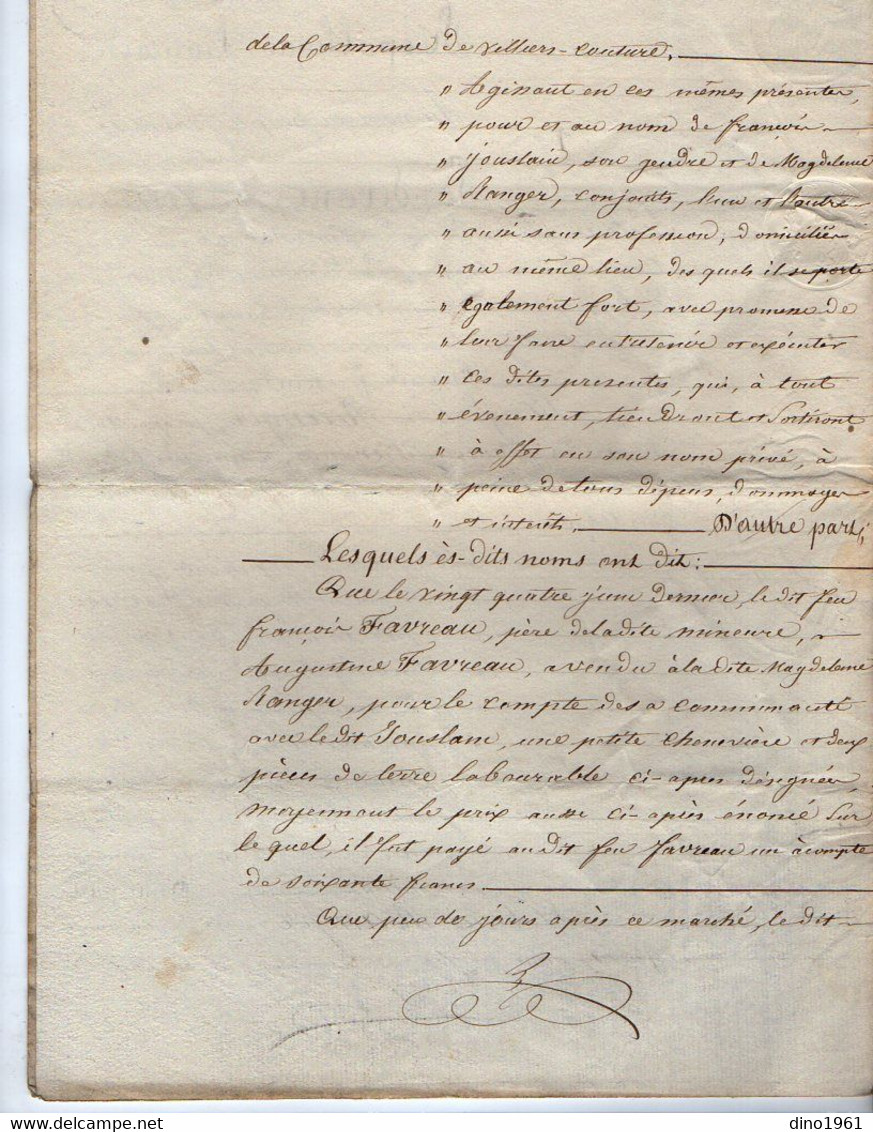 de la Commune de Villiers-couture.
" Agissant en ces mêmes présentes,
" pour et au nom de françois
" Jouslain, son gendre et de Magdeleine
" Ranger, conjoints, l'un et l'autre
" aussi sans profession, domiciliés
" au même lieu, des quels il se porte
" également fort, avec promesse de
" leur faire entretenir et exécuter
" ces dites presentes, qui, à tout
" évenement, tiendront et sortiront
" à effet en son nom privé, à
" peine de tous dépens, dommages
" et intérêts. D'autre part;
Lesquels ès-dits noms ont dit:
Que le vingt quatre juin dernier, le dit feu
françois Favreau, père de la dite mineure,
Augustine Favreau, a vendu à la dite Magdeleine
Ranger, pour le compte de sa communauté
avec le dit Jouslain, une petite chenevière et deux
pièces de terre labourable ci-après désignées,
moyennant le prix aussi ci-après énoncé sur
le quel, il fut payé au dit feu favreau un àcompte
de soixante francs.
Que peu de jours après ce marché, le dit
dino1961